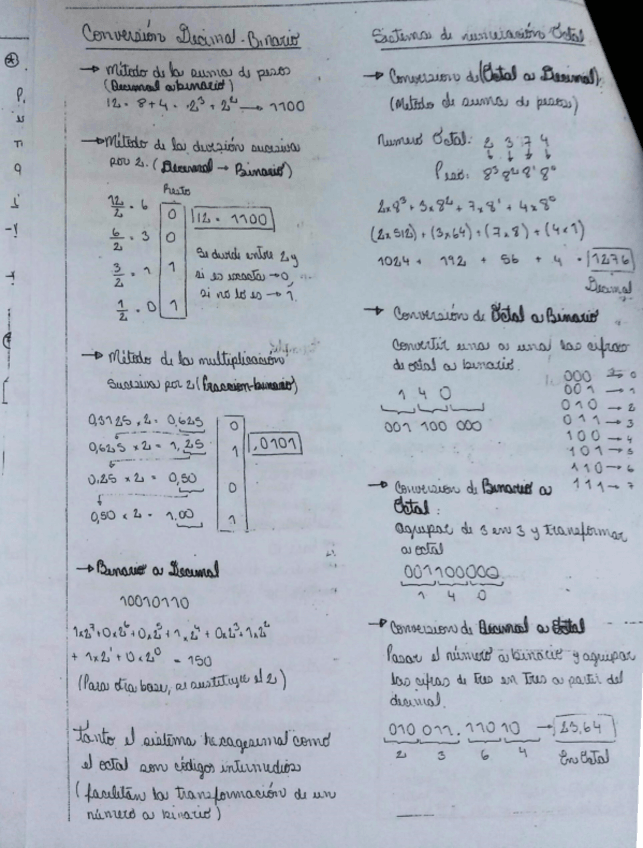 Conversión Decimal-Binario
→ Método de la suma de pesos
(Decimal a binario)
12 = 8+4 = 2³ + 2² → 1100
→ Método de la división sucesiva
por 2. (Decimal → Binario)
Resto
12/2 = 6 0 12 = 1100
6/2 = 3 0
3/2 = 1 1
1/2 = 0 1
Se divide entre 2 y
si es exacta → 0,
si no lo es → 1.
→ Método de la multiplicación
sucesiva por 2 (fracción-binario)
0,3125 x 2 = 0,625 0
0,625 x 2 = 1,25 1 ,0101
0,25 x 2 = 0,50 0
0,50 x 2 = 1,00 1
→ Binario a Decimal
10010110
1x2⁷+0x2⁶+0x2⁵+1x2⁴+0x2³+1x2²
+ 1x2¹+0x2⁰ = 150
(Para otra base, se sustituye el 2)
Tanto el sistema hexagesimal como
el octal son códigos intermedios
(facilitan la transformación de un
número a binario)
Sistema de numeración Octal
→ Conversion de (Octal a Decimal)
(Método de suma de pesos)
Numero Octal: 2 3 7 4
Peso: 8³ 8² 8¹ 8⁰
2x8³ + 3x8² + 7x8¹ + 4x8⁰
(2x512) + (3x64) + (7x8) + (4x1)
1024 + 192 + 56 + 4 = 1276
Decimal
→ Conversión de Octal a Binario
Convertir una a una las cifras
de octal a binario.
1 4 0
001 100 000
000 → 0
001 → 1
010 → 2
011 → 3
100 → 4
101 → 5
110 → 6
111 → 7
→ Conversion de Binario a
Octal:
agrupar de 3 en 3 y transformar
a octal
001100000
1 4 0
→ Conversion de Decimal a Octal
Pasar el número a binario y agrupar
las cifras de tres en tres a partir del
decimal.
010 011. 110 10 → 23,64
2 3 6 4 En Octal